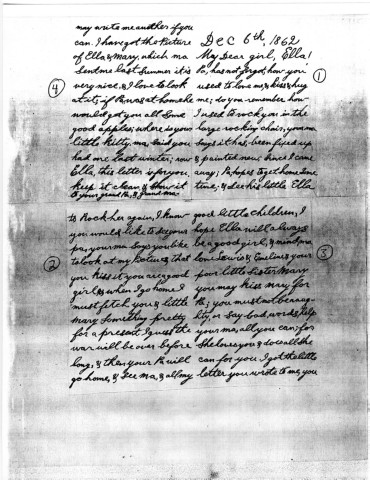 1
Dec 6th, 1862
My Dear girl, Ella!
Pa, has not forgot, how you
used to love me, & kiss & hug
me; do you remember how
I used to rock you in the
large rocking chair, your ma
says it has, been fixed up
& painted new, since I came
away; Pa hopes to get home some
time; & see his little Ella
2
to Rock her again, I know
you would like to see your
pa, your ma says you like
to look at my Picture, & that
you kiss it you are a good
girl & when I go home I
must fetch you & little
Mary something pretty
for a present I guess the
war will be over before
long, & then your Pa will
go home, & see ma, & all my
3
good little children, I
hope Ella will always
be a good girl, & mind ma
love Lewis & Emeline & your
little sister Mary
you may kiss mary for
Pa; you must not be naug-
hty, or say bad words, help
your ma, all you can; for
she loves you & does all she
can for you I got the little
letter you wrote to me, you
4
may write me another if you
can. I have got the Picture
of Ella & Mary, which ma
Sent me last Summer it is
very nice, & I love to look
at it; if Pa was at home he
would get you all Some
good apples; where is your
little kitty, ma, said you
had one last winter; now
Ella, this letter is for you,
keep it clean, & show it
to your grand Pa, & grand ma